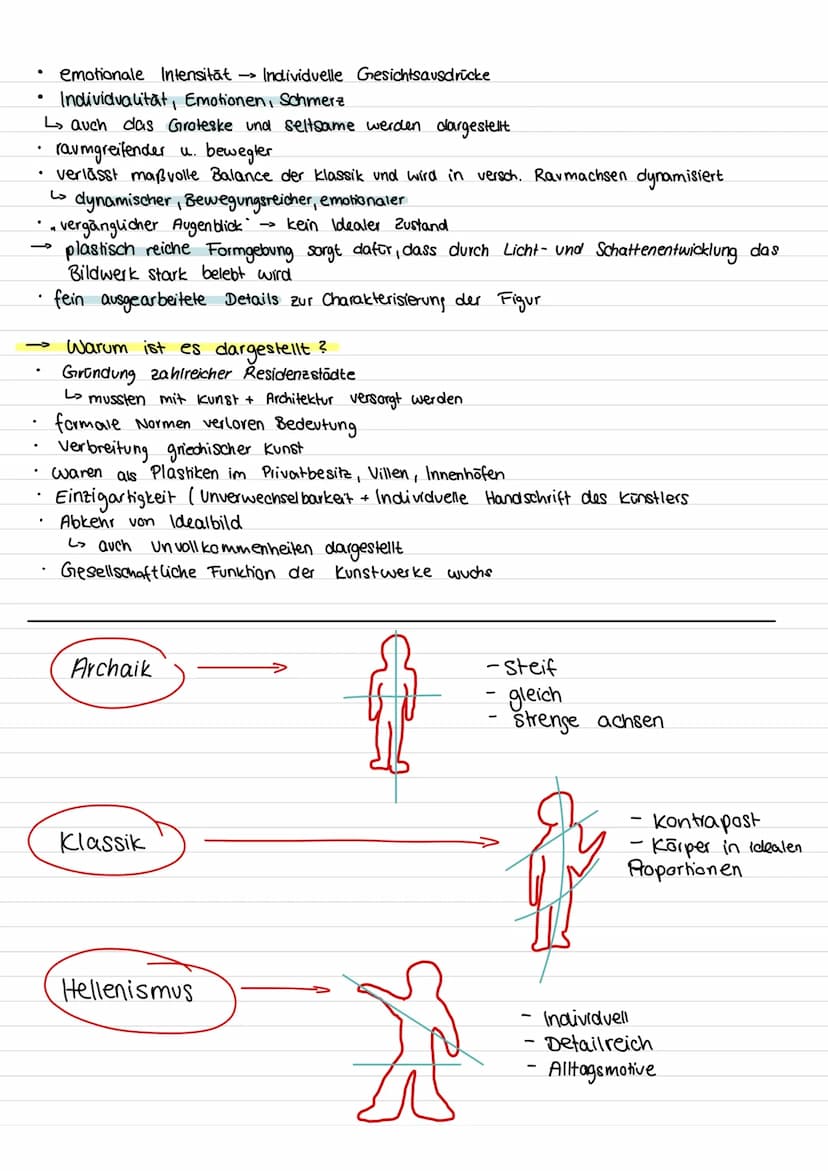 • emotionale Intensität → Individuelle Gesichtsausdrücke
• Individualität, Emotionen, Schmerz
↳ auch das Groteske und seltsame werden dargestellt
• raumgreifender u. bewegter
• verlässt maßvolle Balance der Klassik und wird in versch. Raumachsen dynamisiert
↳ dynamischer, Bewegungsreicher, emotionaler
• „vergänglicher Augenblick" → kein Idealer Zustand
→ plastisch reiche Formgebung sorgt dafür, dass durch Licht- und Schattenentwicklung das
Bildwerk stark belebt wird
• fein ausgearbeitete Details zur Charakterisierung der Figur
→ Warum ist es dargestellt?
• Gründung zahlreicher Residenzstädte
↳ mussten mit Kunst + Architektur versorgt werden
• formale Normen verloren Bedeutung
• Verbreitung griechischer Kunst
• waren als Plastiken im Privatbesitz, Villen, Innenhöfen
• Einzigartigkeit (Unverwechselbarkeit + Individuelle Handschrift des Künstlers
• Abkehr von Idealbild
↳ auch Unvollkommenheiten dargestellt
• Gesellschaftliche Funktion der Kunstwerke wuchs
Archaik →
- steif
- gleich
- strenge achsen
Klassik →
- Kontrapost
- Körper in idealen
Proportionen
Hellenismus →
- Individuell
- Detailreich
- Alltagsmotive